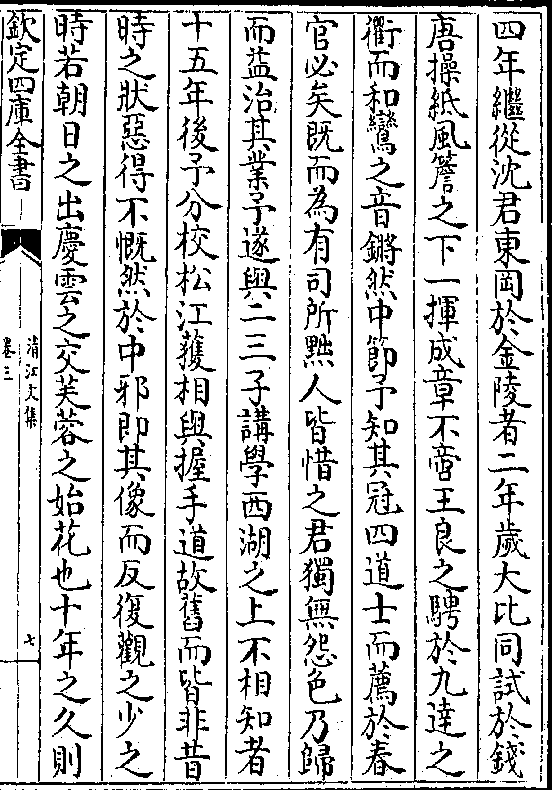 四年繼從沈君東岡於金陵者二年歲大比同試於錢
唐操紙風簷之下一揮成章不啻王良之騁於九逵之
衢而和鸞之音鏘然中節予知其冠四道士而薦於春
官必矣既而為有司所黜人皆惜之君獨無怨色乃歸
而益治其業予遂與二三子講學西湖之上不相知者
十五年後予分校松江獲相與握手道故舊而皆非昔
時之狀惡得不慨然於中邪即其像而反復觀之少之
時若朝日之出慶雲之交芙蓉之始花也十年之久則
欽定四庫全書
清江文集
卷三
七